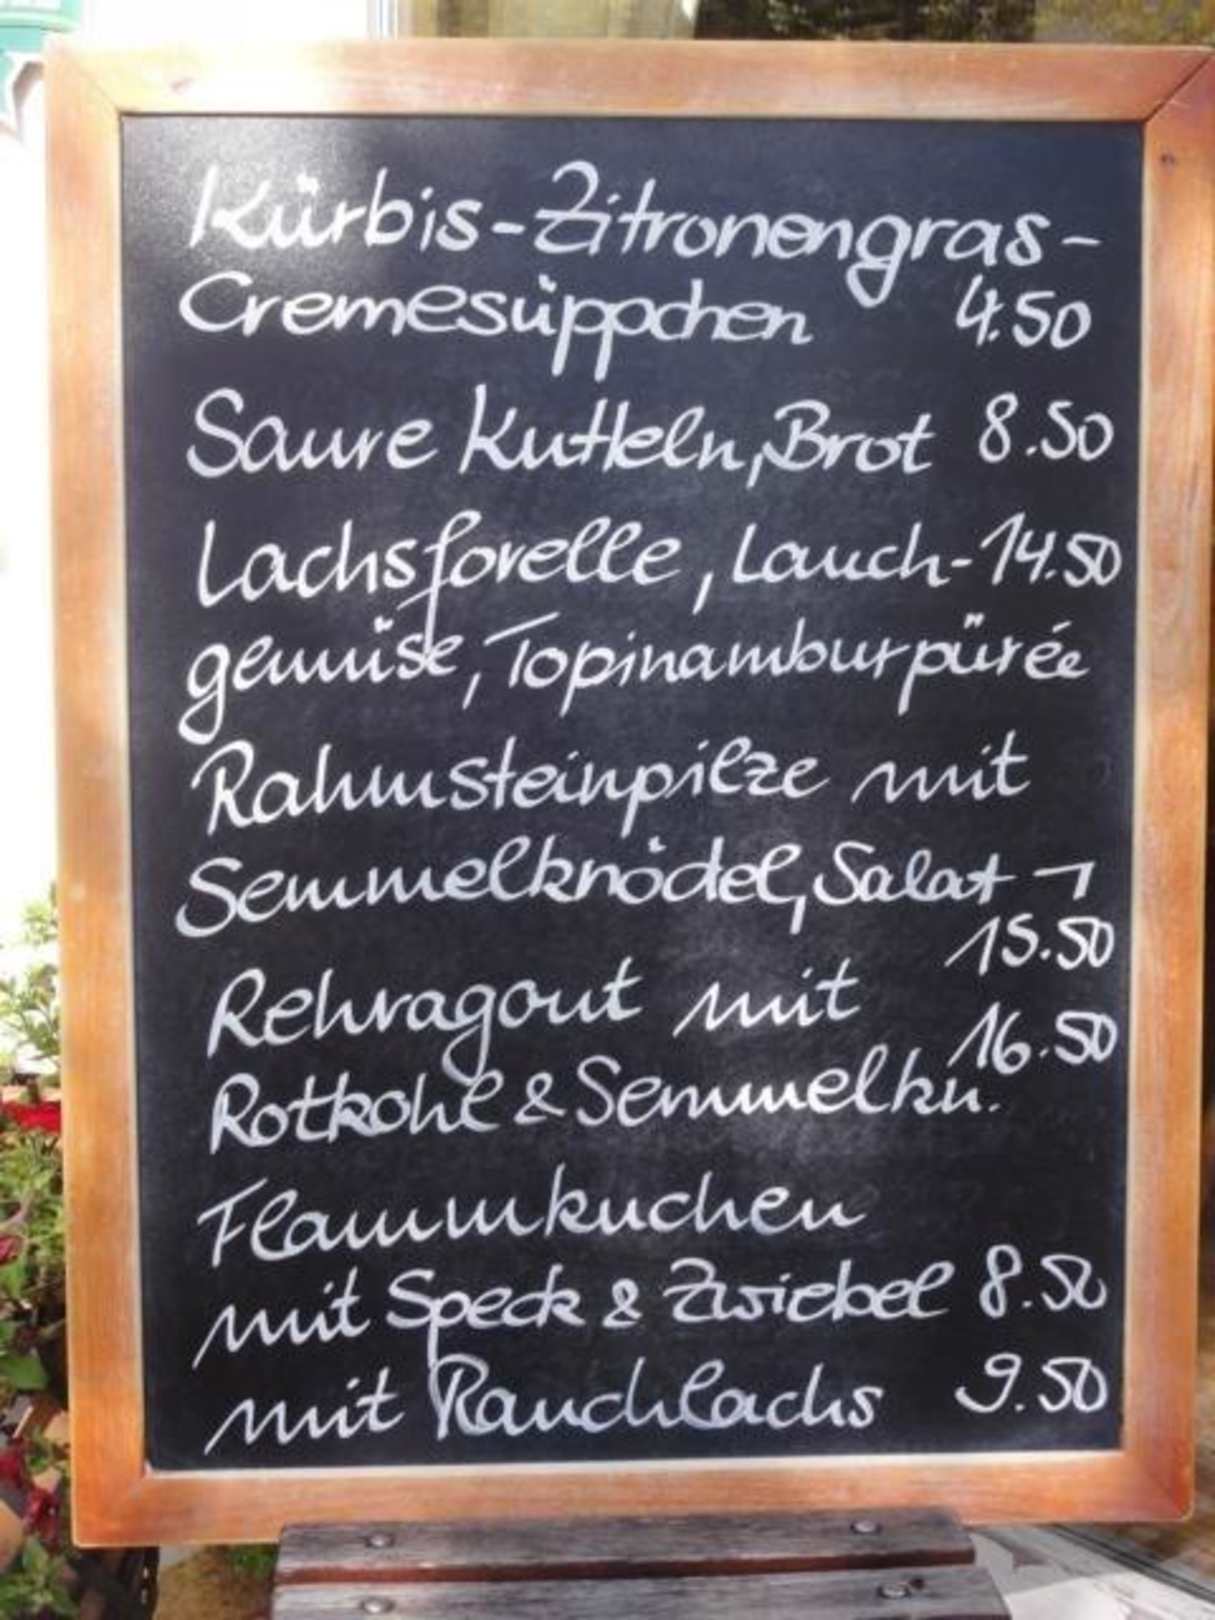 Kürbis-Zitronengras-
Cremesüppchen 4.50
Saure Kutteln, Brot 8.50
Lachsforelle, Lauch- 14.50
gemüse, Topinamburpürée
Rahmsteinpilze mit
Semmelknödel, Salat
15.50
Rehragout mit
16.50
Rotkohl & Semmelkn.
Flammkuchen
mit Speck & Zwiebel 8.50
mit Rauchlachs 9.50